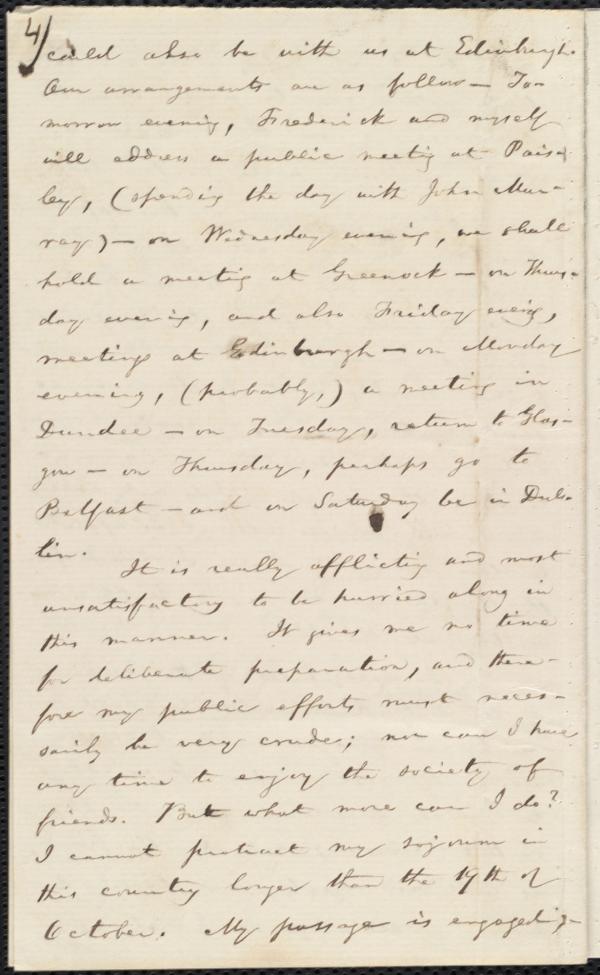 4/
could also be with us at Edinburgh.
Our arrangements are as follow — To-
morrow evening, Frederick and myself
will address a public meeting at Pais-
ley, (spending the day with John Mur-
ray) — on Wednesday evening, we shall
hold a meeting at Greenock — on Thurs-
day evening, and also Friday evening,
meetings at Edinburgh — on Monday
evening, (probably,) a meeting in
Dundee — on Tuesday, return to Glas-
gow — on Thursday, perhaps go to
Belfast — and on Saturday be in Dub-
lin.
It is really afflicting and most
unsatisfactory to be hurried along in
this manner. It gives me no time
for deliberate preparation, and there-
fore my public efforts must neces-
sarily be very crude; nor can I have
any time to enjoy the society of
friends. But what more can I do?
I cannot protract my sojourn in
this country longer than the 19th of
October. My passage is engaged,